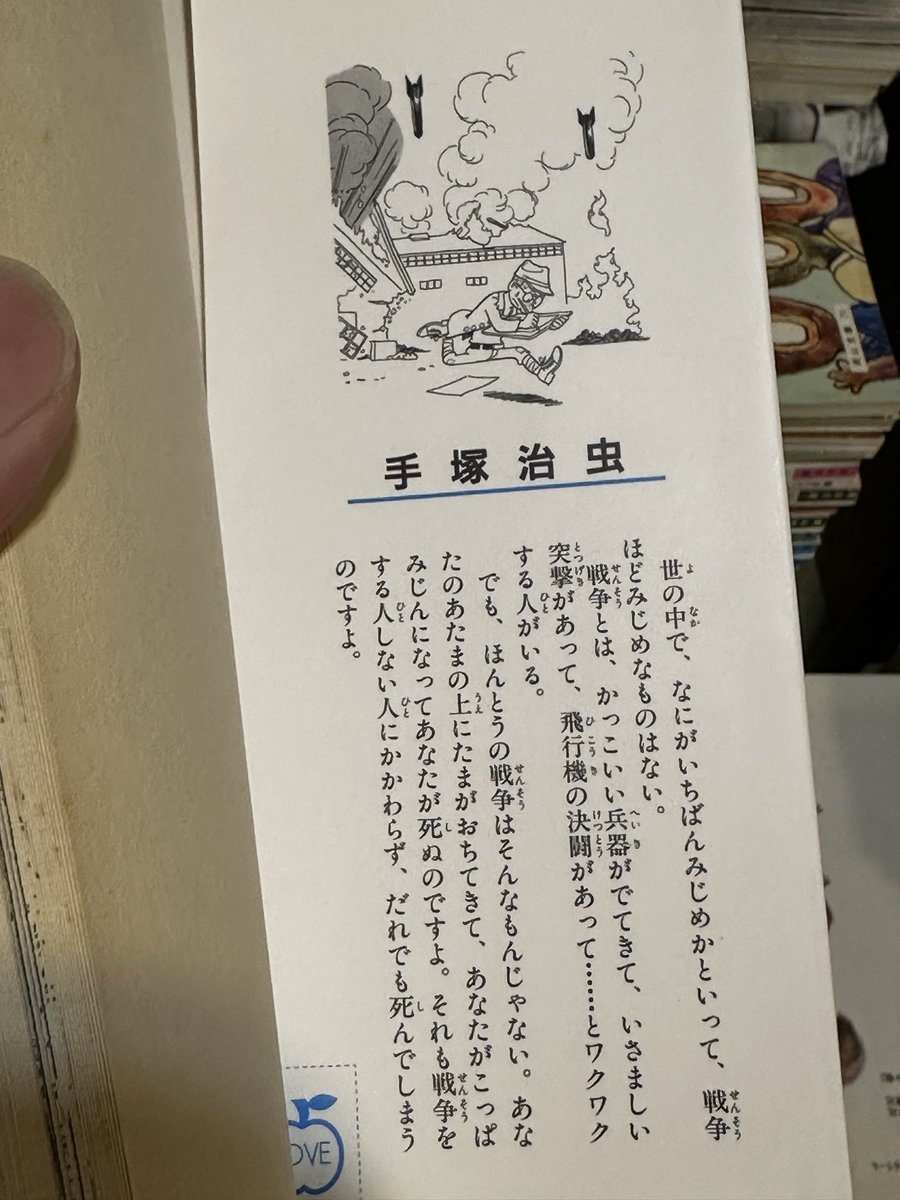 手塚治虫
世の中で、なにがいちばんみじめかといって、戦争
ほどみじめなものはない。
戦争とは、かっこいい兵器がでてきて、いさましい
突撃があって、飛行機の決闘があって……とワクワク
する人がいる。
でも、ほんとうの戦争はそんなもんじゃない。あな
たのあたまの上にたまがおちてきて、あなたがこっぱ
みじんになってあなたが死ぬのですよ。それも戦争を
する人しない人にかかわらず、だれでも死んでしまう
のですよ。
OVE